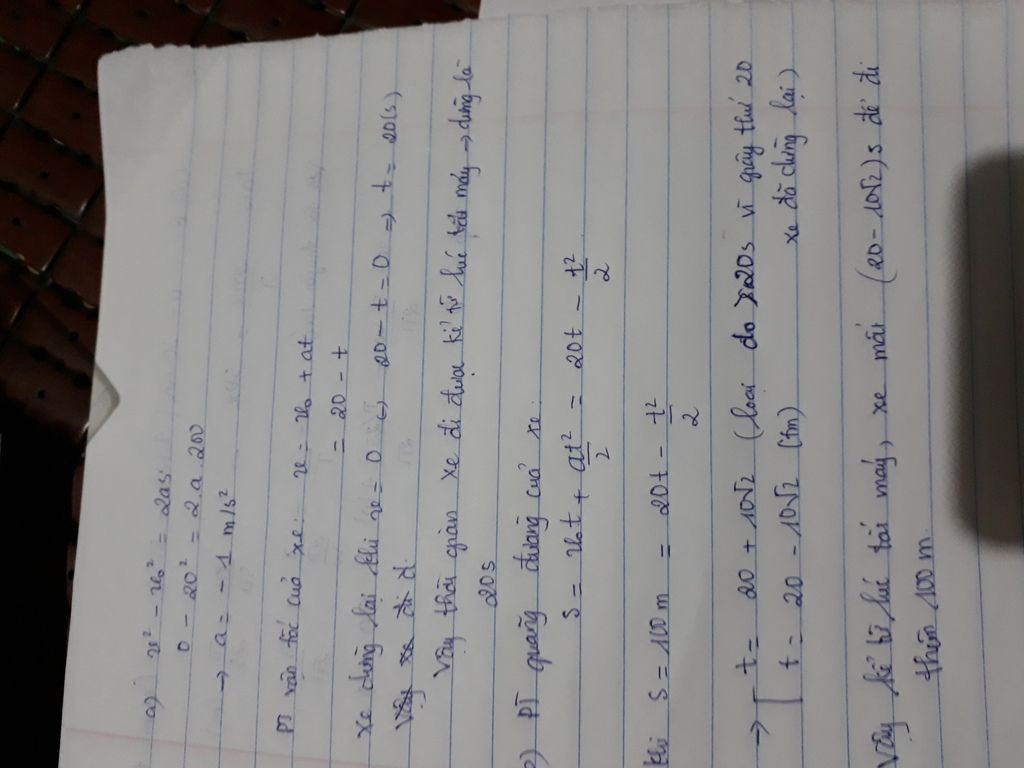 a) v² - v₀² = 2as
0 - 20² = 2.a.200
→ a = -1 m/s²
PT vận tốc của xe: v = v₀ + at
= 20 - t
Xe dừng lại khi v = 0 ⇔ 20 - t = 0 ⇒ t = 20(s)
Vậy thời gian xe đi được kể từ lúc tắt máy → dừng là
20s
) PT quãng đường của xe:
S = v₀t + at²/2 = 20t - t²/2
Khi S = 100m = 20t - t²/2
→ [ t = 20 + 10√2 (loại do >20s vì giây thứ 20
xe đã dừng lại)
t = 20 - 10√2 (tm)
Vậy kể từ lúc tắt máy, xe mất (20 - 10√2)s để đi
thêm 100m.